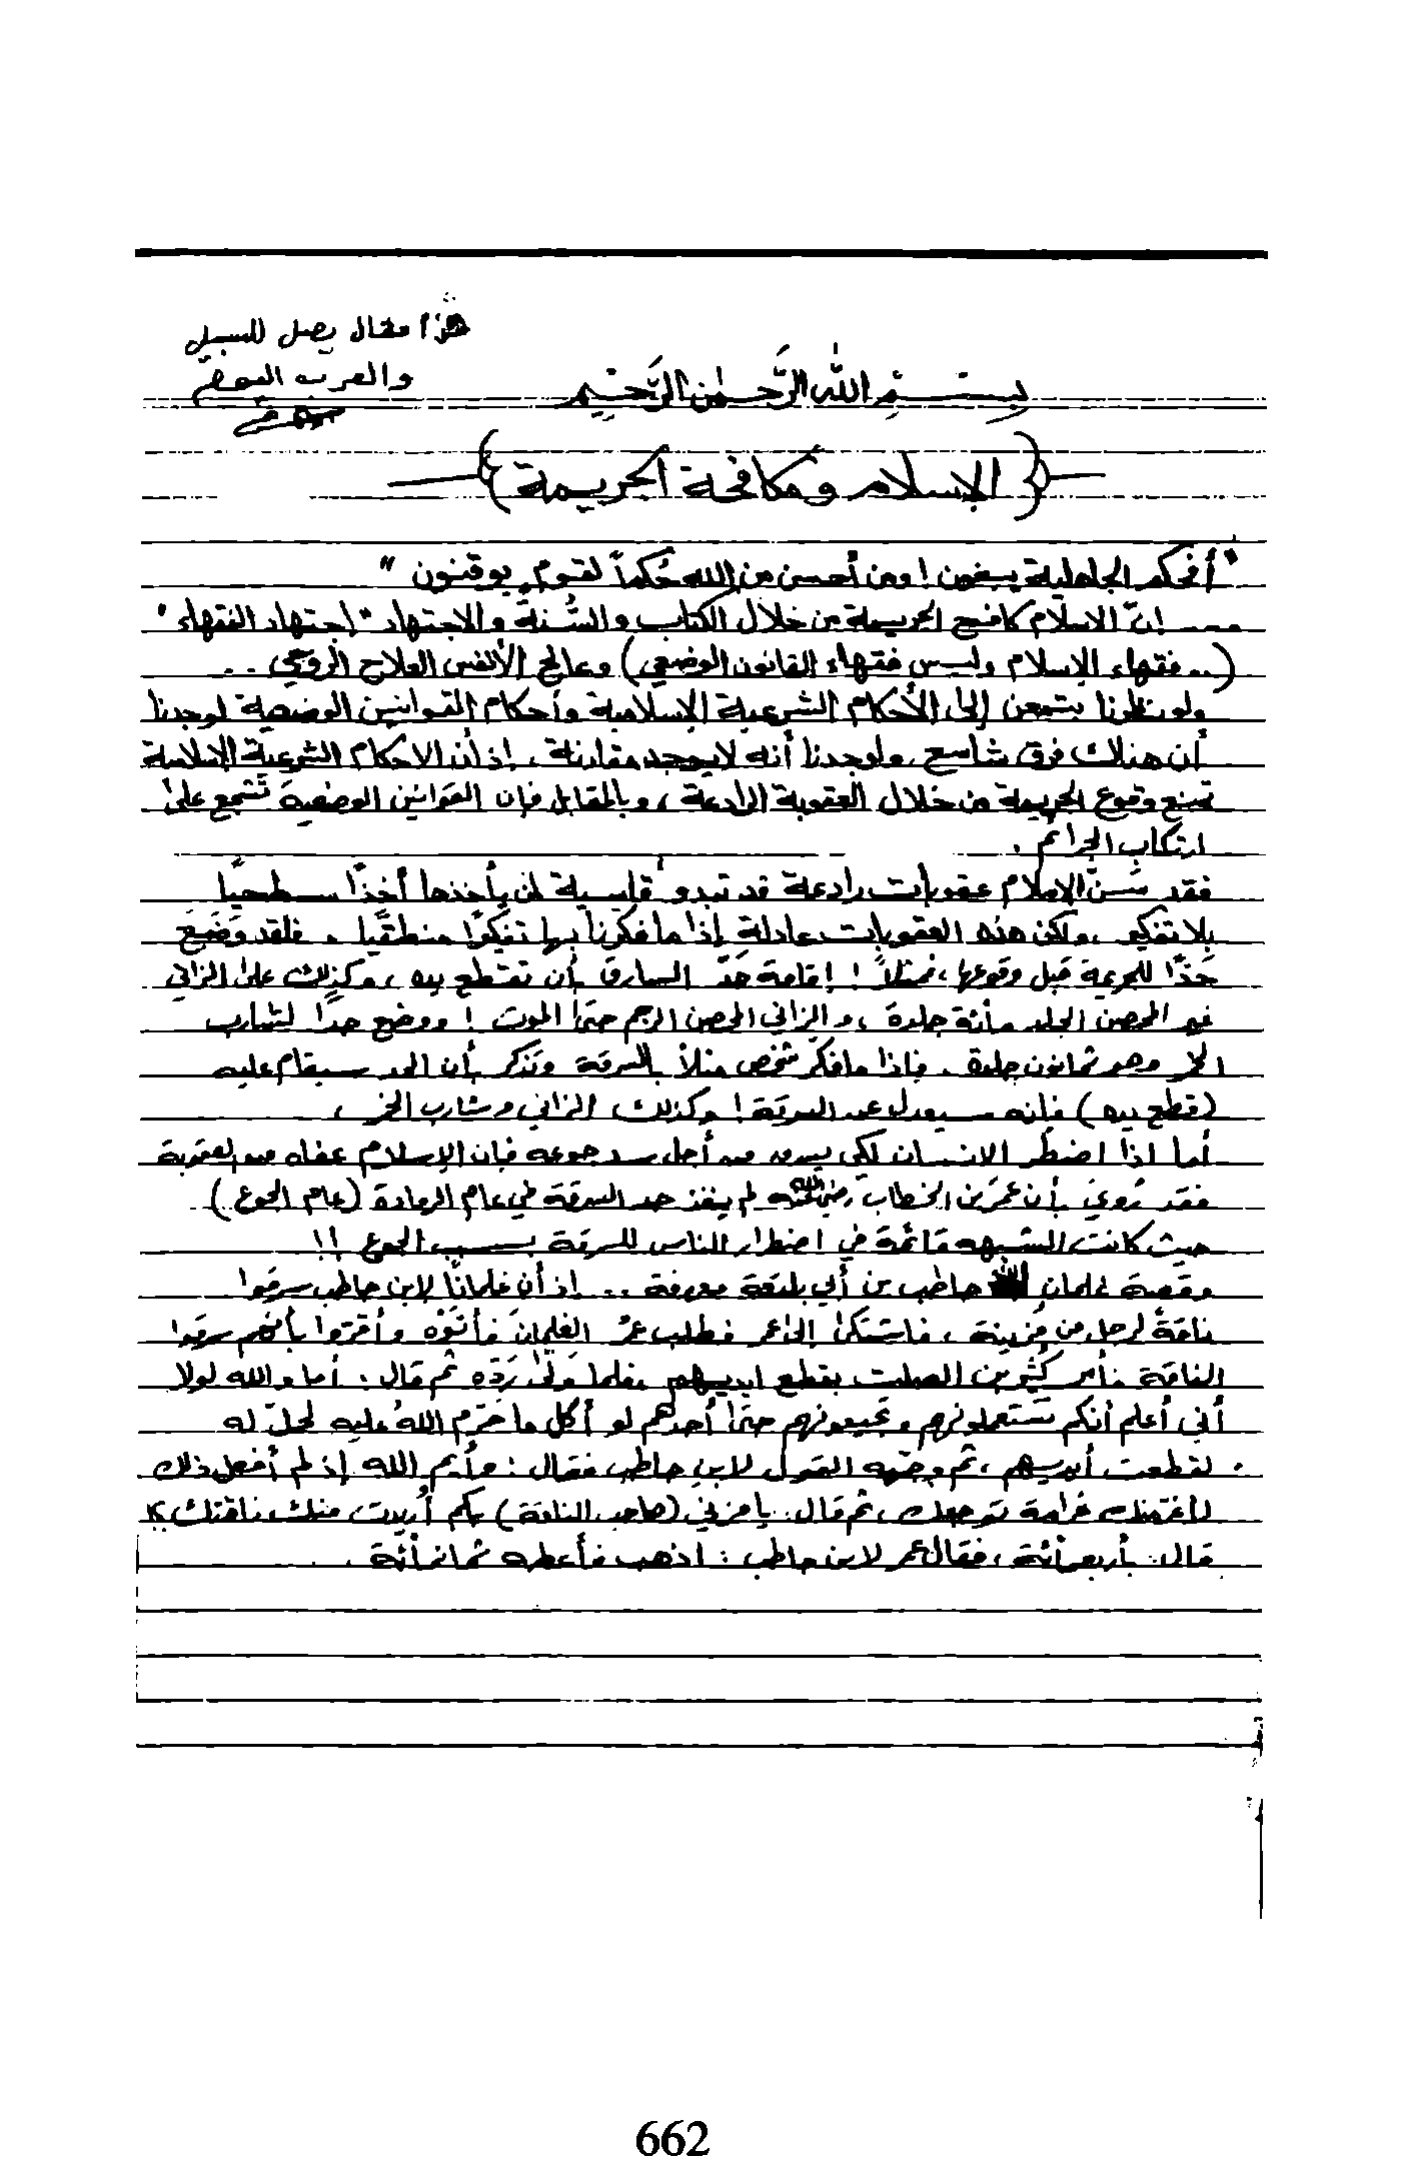 هذا مقال يصل للسبيل
والعرب اليوم
بسم الله الرَّحمٰن الرَّحيم
{الإسلام ومكافحة الجريمة}
"أفحكم الجاهلية يبغون! ومن أحسن من الله حُكماً لقومٍ يوقنون"
... إنّ الاسلام كافح الجريمة من خلال الكتاب والسُّنة والاجتهاد "اجتهاد الفقهاء"
(.. فقهاء الإسلام وليس فقهاء القانون الوضعي) وعالج الأنفس العلاج الروحي ..
ولو نظرنا بتمعن إلى الأحكام الشرعية الإسلامية وأحكام القوانين الوضعية لوجدنا
أن هناك فرق شاسع، ولوجدنا أنه لا يوجد مقارنة، إذ أن الاحكام الشرعية الإسلامية
تمنع وقوع الجريمة من خلال العقوبة الرادعة، وبالمقابل فإن القوانين الوضعية تشجع على
ارتكاب الجرائم.
فقد سَنّ الإسلام عقوبات رادعة قد تبدو قاسية لمن يأخذها أخذًا سطحيًا
بلا تفكير، ولكن هذه العقوبات عادلة إذا ما فكرنا بها تفكيرًا منطقيًا، فلقد وَضَعَ
حَدًّا للجريمة قبل وقوعها، فمثلاً! إقامة حَدّ السارق بأن تقطع يده، وكذلك على الزاني
غير المحصن الجلد مائة جلدة، والزاني المحصن الرجم حتى الموت! ووضع حدًا لشارب
الخمر وهو ثمانون جلدة، فإذا ما فكر شخص مثلاً بالسرقة وتذكر بأن الحد سيقام عليه
(قطع يده) فإنه سيعدل عن السرقة! وكذلك الزاني وشارب الخمر،
أما إذا اضطر الانسان لكي يسرق من أجل سد جوعه فإن الإسلام عفاه من العقوبة
فقد رُويَ بأن عُمَرَ بن الخطاب رضي الله عنه لم ينفذ حد السرقة في عام الرمادة (عام الجوع)
حيث كانت الشبهه قائمة في اضطرار الناس للسرقة بسبب الجوع !!
وقصة غلمان حاطب بن أبي بلتعة معروفة .. إذ أن غلمانًا لابن حاطب سرقوا
ناقةً لرجل من مُزينة، فاشتكى إلى عمر فطلب عمرُ الغلمانَ فأتَوْه وأقرّوا بأنهم سرقوا
الناقة فأمر كُثير بن الصلت بقطع ايديهم، فلما ولّى رَدّه ثم قال: أما والله لولا
أني أعلم أنكم تستعملونهم وتجيعونهم حتى أحدهم لو أكل ما حَرّم اللهُ عليه لحلّ له
لقطعت أيديهم، ثم وجّه القول لابن حاطب فقال: وأيم الله إذ لم أفعل ذلك
لأغرمنك غرامة توجعك، ثم قال: يا مزني (صاحب الناقة) بكم أُريدت منك ناقتك؟
قال: بأربعمائة، فقال عمر لابن حاطب: اذهب فأعطه ثمانمائة.
662